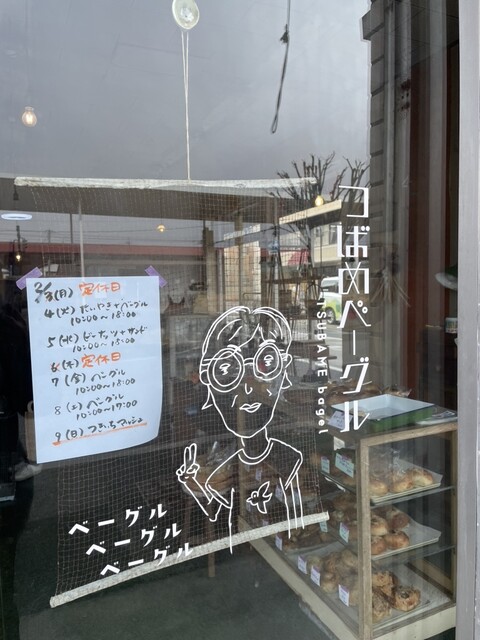 つばめベーグル
TSUBAME bagel
2/3(月) 定休日
4(火) たいやき+ベーグル
10:00〜18:00
5(水) ピーナッツ+サンド
10:00〜15:00
6(木) 定休日
7(金) ベーグル
10:00〜15:00
8(土) ベーグル
10:00〜17:00
9(日) つきいちマッシュ
ベーグル
ベーグル
ベーグル